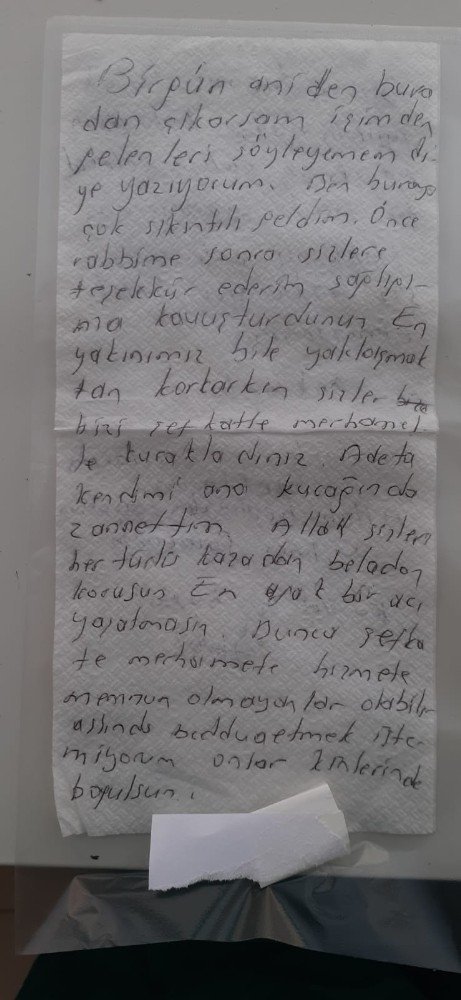 Birgün aniden bura
dan çıkarsam içimden
gelenleri söyleyemem di-
ye yazıyorum. Ben buraya
çok sıkıntılı geldim. Önce
rabbime sonra sizlere
teşekkür ederim sağlığı-
ma kavuşturdunuz En
yakınımız bile yaklaşmak
tan korkarken sizler
bizi şefkatle merhamet
le kucakladınız. Adeta
kendimi ana kucağında
zannettim. Allah sizleri
her türlü kazadan beladan
korusun. En ufak bir acı
yaşatmasın. Bunca şefka
te merhamete hizmete
memnun olmayanlar olabilir
aslında bedduaetmek iste
miyorum onlar kinlerinde
boğulsun.